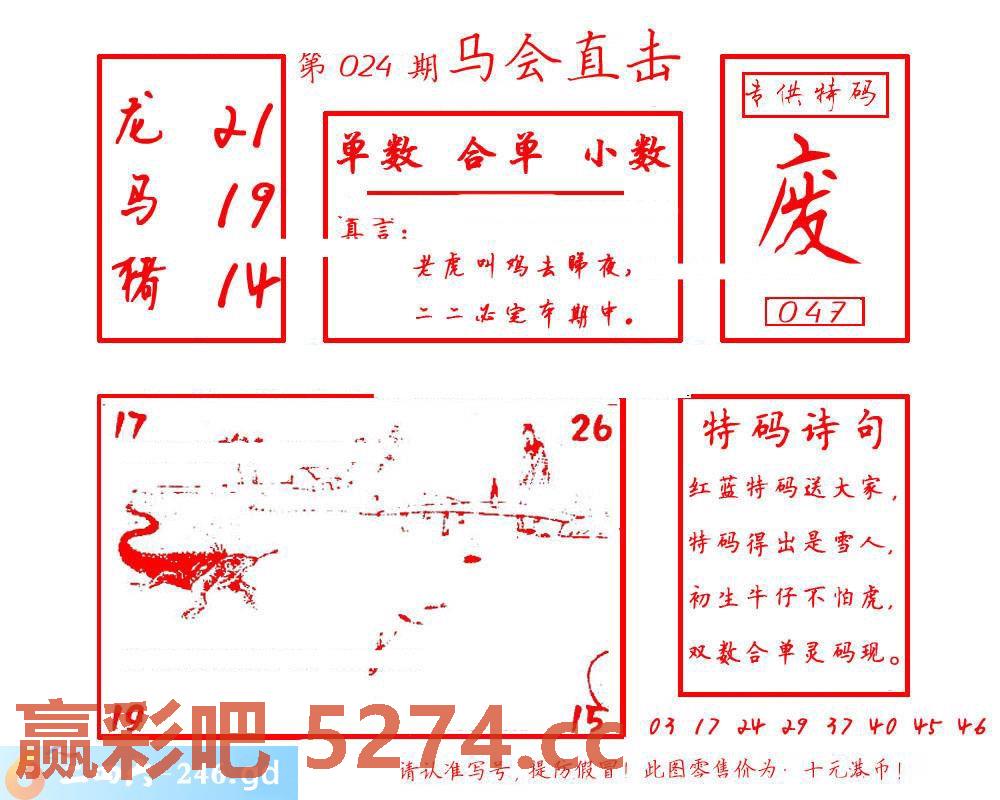 第 024 期 马会直击
龙 21
马 19
猪 14
单数 合单 小数
真言：
老虎叫鸡去睇夜，
二二必定本期中。
专供特码
废
047
17
26
19
15
特码诗句
红蓝特码送大家，
特码得出是雪人，
初生牛仔不怕虎，
双数合单灵码现。
03 17 24 29 37 40 45 46
赢彩吧 5274.cc
-246.gd
请认准写号，提防假冒！此图零售价为·十元港币！